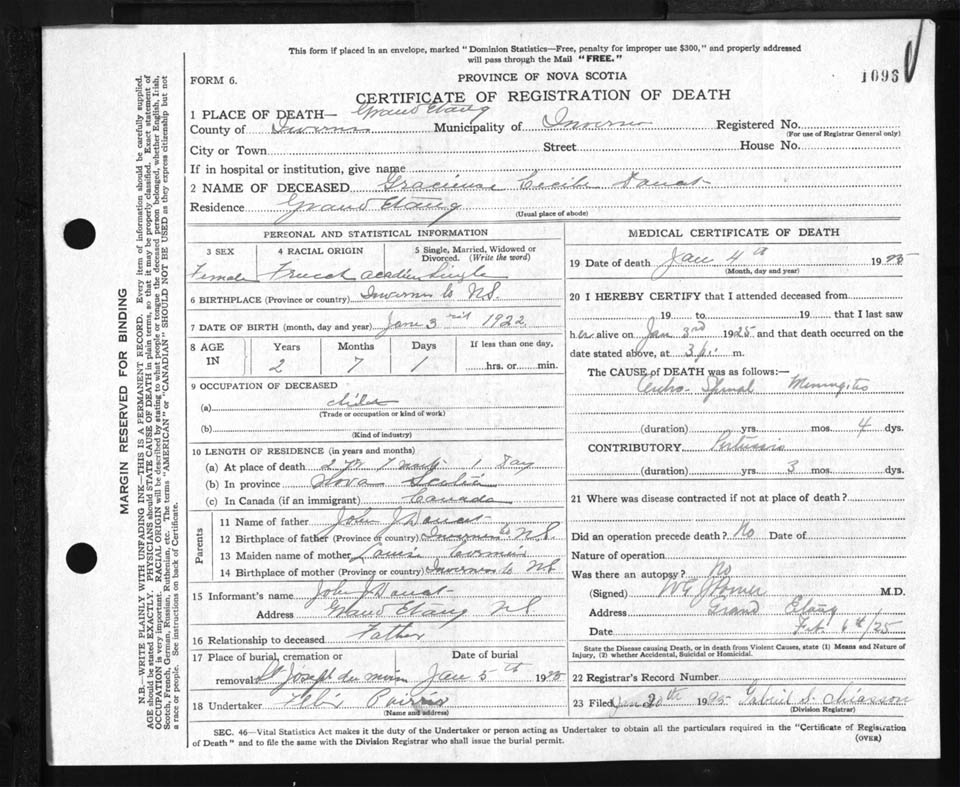 This form if placed in an envelope, marked "Dominion Statistics—Free, penalty for improper use $300," and properly addressed
will pass through the Mail "FREE."
FORM 6.
PROVINCE OF NOVA SCOTIA
1093
CERTIFICATE OF REGISTRATION OF DEATH
1 PLACE OF DEATH— Grand Etang
County of Inverness Municipality of Inverness Registered No.
(For use of Registrar General only)
City or Town Street House No.
If in hospital or institution, give name
2 NAME OF DECEASED Gracieuse Cecile Doucet
Residence Grand Etang
(Usual place of abode)
PERSONAL AND STATISTICAL INFORMATION
3 SEX 4 RACIAL ORIGIN 5 Single, Married, Widowed or
Divorced. (Write the word)
Female French Acadien Single
6 BIRTHPLACE (Province or country) Inverness Co NS.
7 DATE OF BIRTH (month, day and year) June 3rd 1922
8 AGE IN Years Months Days If less than one day,
2 7 1 hrs. or min.
9 OCCUPATION OF DECEASED
(a) child
(Trade or occupation or kind of work)
(b)
(Kind of industry)
10 LENGTH OF RESIDENCE (in years and months)
(a) At place of death 2 yr 7 1 Day
(b) In province Nova Scotia
(c) In Canada (if an immigrant) Canada
Parents
11 Name of father John J Doucet
12 Birthplace of father (Province or country) Inverness Co N.S.
13 Maiden name of mother Louise Cormier
14 Birthplace of mother (Province or country) Inverness Co NS
15 Informant's name John J Doucet
Address Grand Etang NS
16 Relationship to deceased Father
17 Place of burial, cremation or Date of burial
removal St Joseph du Jan 5th 1925
18 Undertaker
(Name and address)
MEDICAL CERTIFICATE OF DEATH
19 Date of death Jan 4th 1925
(Month, day and year)
20 I HEREBY CERTIFY that I attended deceased from
19 to 19 that I last saw
her alive on Jan 3rd 1925 and that death occurred on
date stated above, at 3 p. m.
The CAUSE of DEATH was as follows:—
Cerebro-Spinal Meningitis
(duration) yrs. mos. 4 dys.
CONTRIBUTORY Pertussis
(duration) yrs. 3 mos. dys.
21 Where was disease contracted if not at place of death?
Did an operation precede death? No Date of
Nature of operation
Was there an autopsy? No
(Signed) M.D.
Address Grand Etang
Date Feb 6th/25
State the Disease causing Death, or in death from Violent Causes, state (1) Means and Nature of
Injury, (2) whether Accidental, Suicidal or Homicidal.
22 Registrar's Record Number
23 Filed Jan 20th 1925 Gabriel S. Chiasson
(Division Registrar)
SEC. 46—Vital Statistics Act makes it the duty of the Undertaker or person acting as Undertaker to obtain all the particulars required in the "Certificate of Registration
of Death" and to file the same with the Division Registrar who shall issue the burial permit.
(OVER)
MARGIN RESERVED FOR BINDING
N.B.—WRITE PLAINLY WITH UNFADING INK—THIS IS A PERMANENT RECORD. Every item of information should be carefully supplied.
AGE should be stated EXACTLY. PHYSICIANS should STATE CAUSE OF DEATH in plain terms, so that it may be properly classified. Exact statement of
OCCUPATION is very important. RACIAL ORIGIN will be described by stating to what people or tongue the deceased person belonged, whether English, Irish,
Scotch, French, German, Russian, Ruthenian, etc. The terms "AMERICAN" or "CANADIAN" SHOULD NOT BE USED as they express citizenship but not
a race or people. See instructions on back of Certificate.